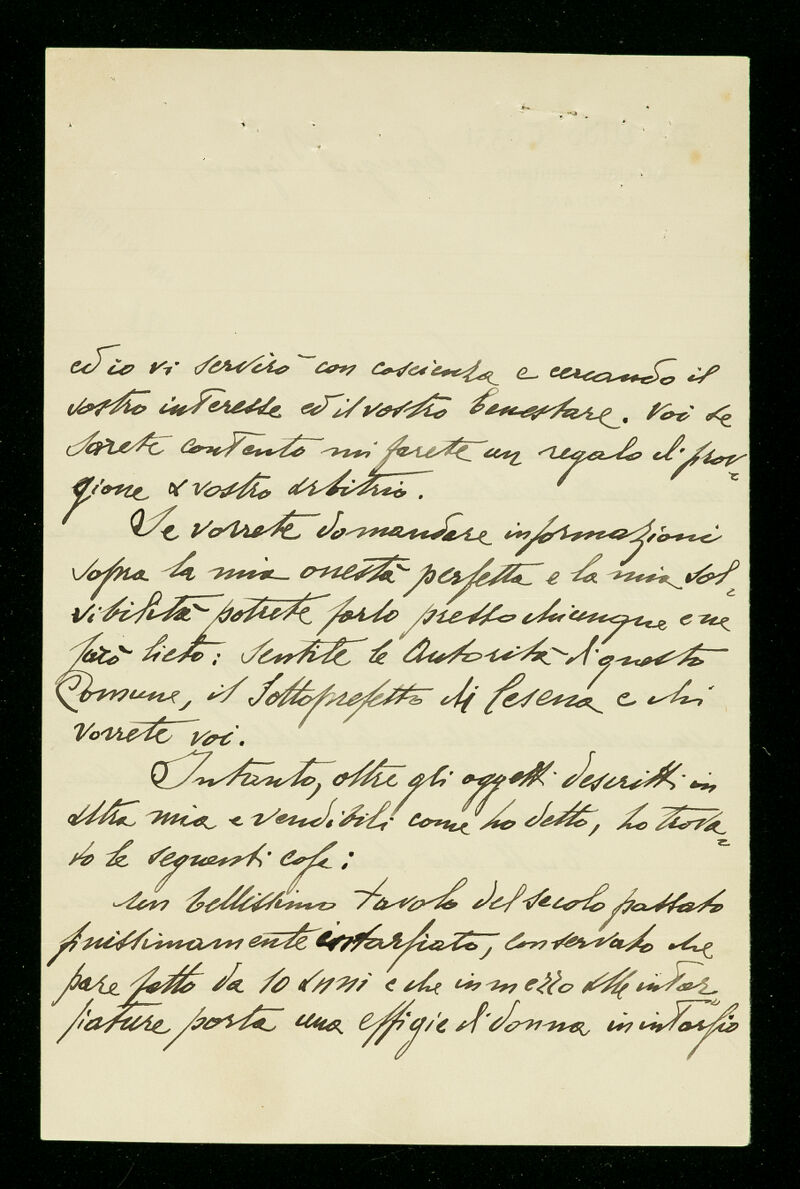 ed io vi servirò con coscienza e cercando il
vostro interesse ed il vostro benestare. Voi se
sarete contento mi farete un regalo di prov-
gione a vostro arbitrio.
Se vorrete domandare informazioni
sopra la mia onestà perfetta e la mia sol-
vibilità potrete farlo presso chiunque e ne
sarò lieto: sentite le Autorità di questo
Comune, il Sottoprefetto di Cesena e chi
vorrete voi.
Intanto, oltre gli oggetti descritti in
altra mia e vendibili come ho detto, ho trova-
to le seguenti cose:
un bellissimo tavolo del secolo passato
finissimamente intarsiato, conservato che
pare fatto da 10 anni e che in mezzo alle intar-
siature porta una effigie di donna in intarsio